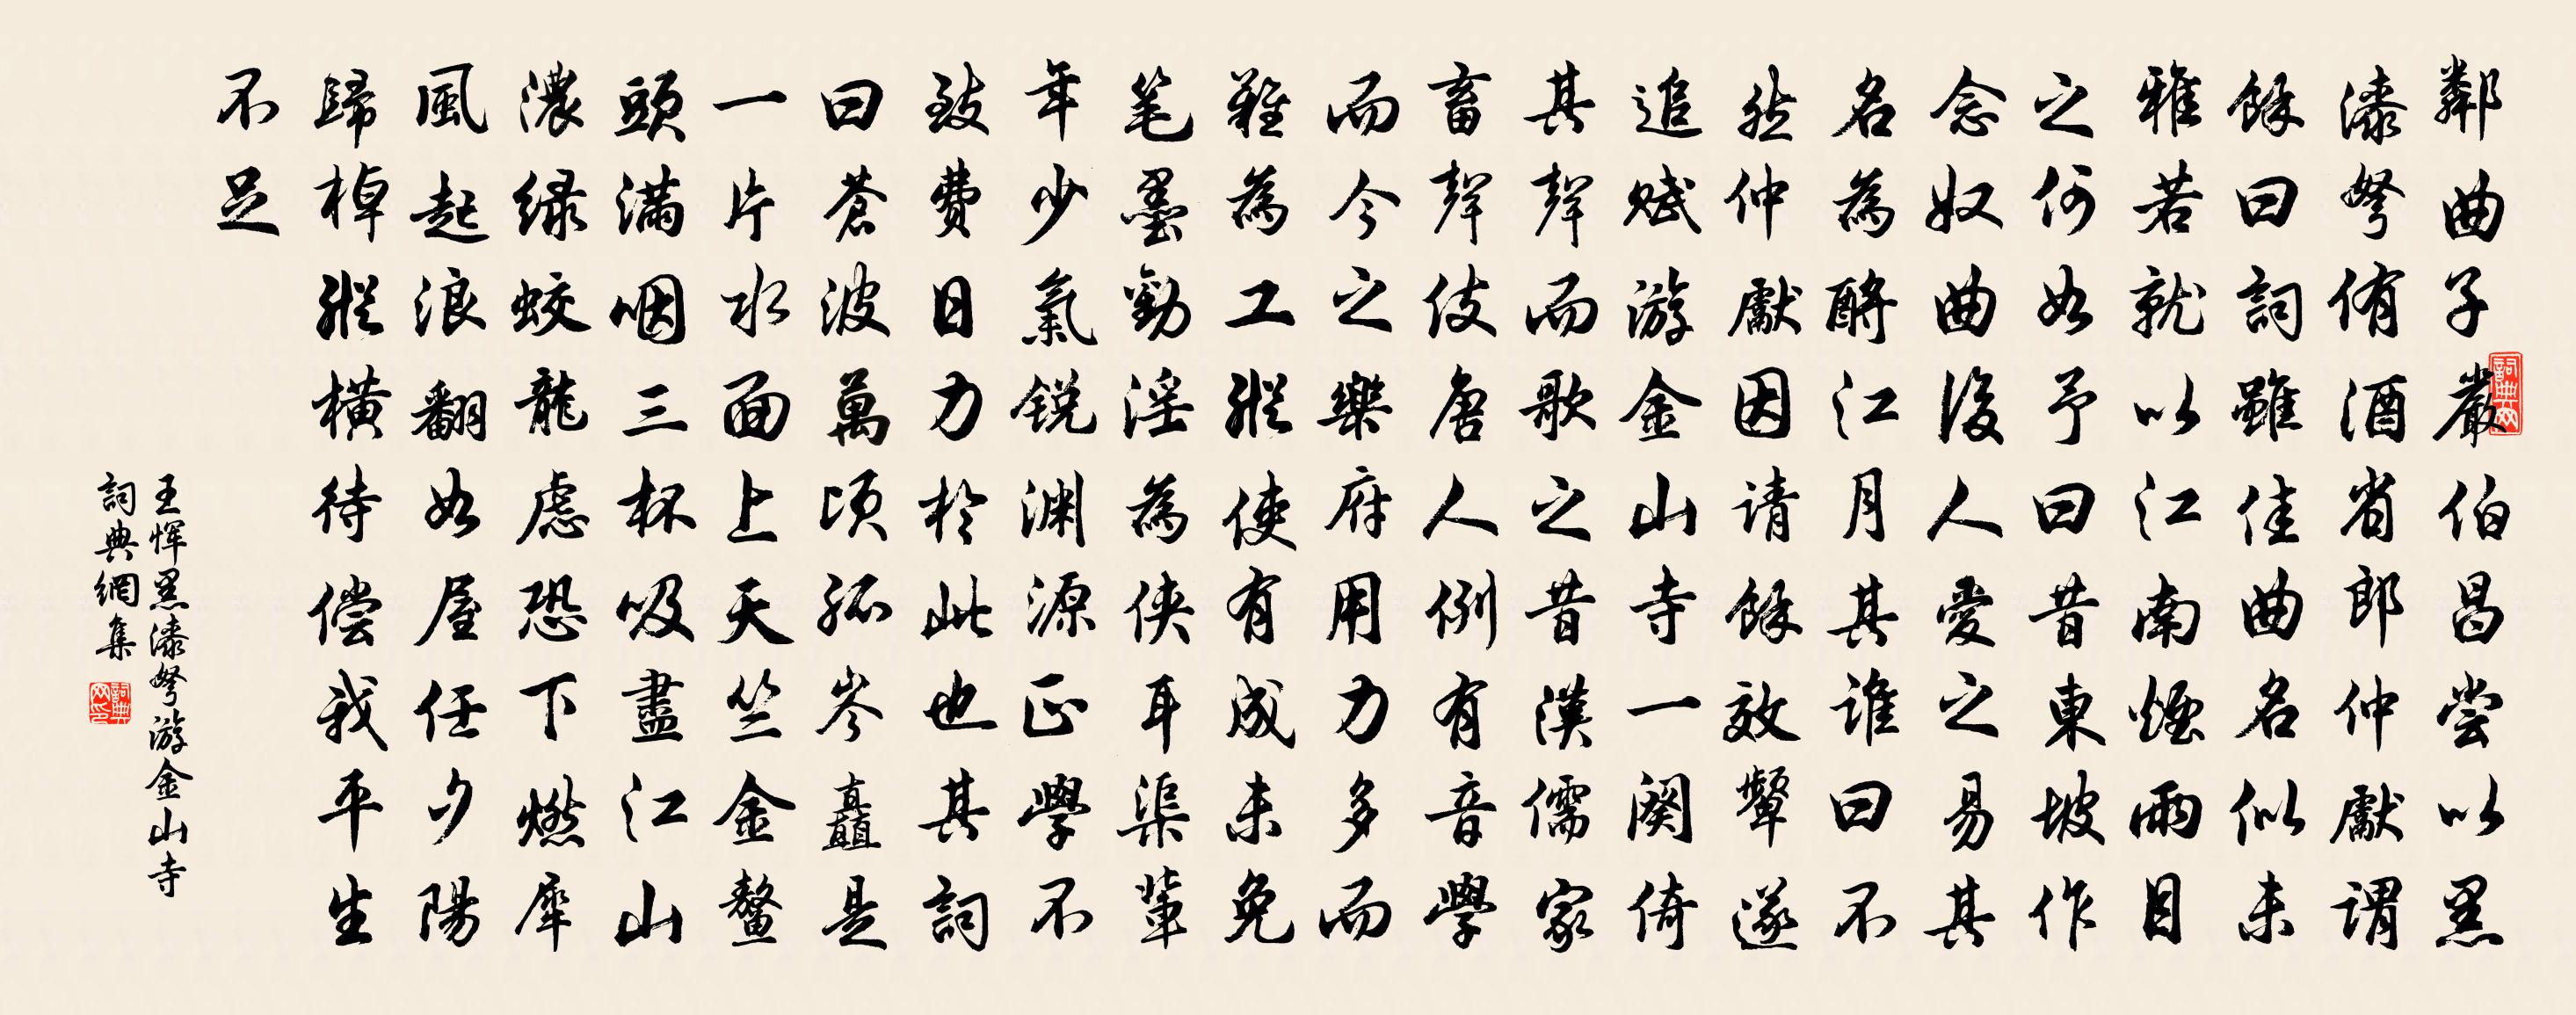 鄰曲子嚴伯昌嘗以黑
漆弩侑酒省郎仲獻謂
餘曰詞雖佳曲名似未
雅若就以江南煙雨目
之何如予曰昔東坡作
念奴曲後人愛之易其
名為酹江月其誰曰不
然仲獻因请餘效顰遂
追賦游金山寺一闋倚
其聲而歌之昔漢儒家
畜聲伎唐人例有音學
而今之樂府用力多而
難為工縱使有成未免
笔墨勸淫為俠耳渠輩
年少氣锐渊源正學不
致費日力於此也其詞
曰蒼波萬顷孤岑矗是
一片水面上天竺金鳌
頭滿咽三杯吸盡江山
濃绿蛟龍慮恐下燃犀
風起浪翻如屋任夕陽
歸棹縱橫待偿我平生
不足
王恽黑漆弩游金山寺
詞典網集